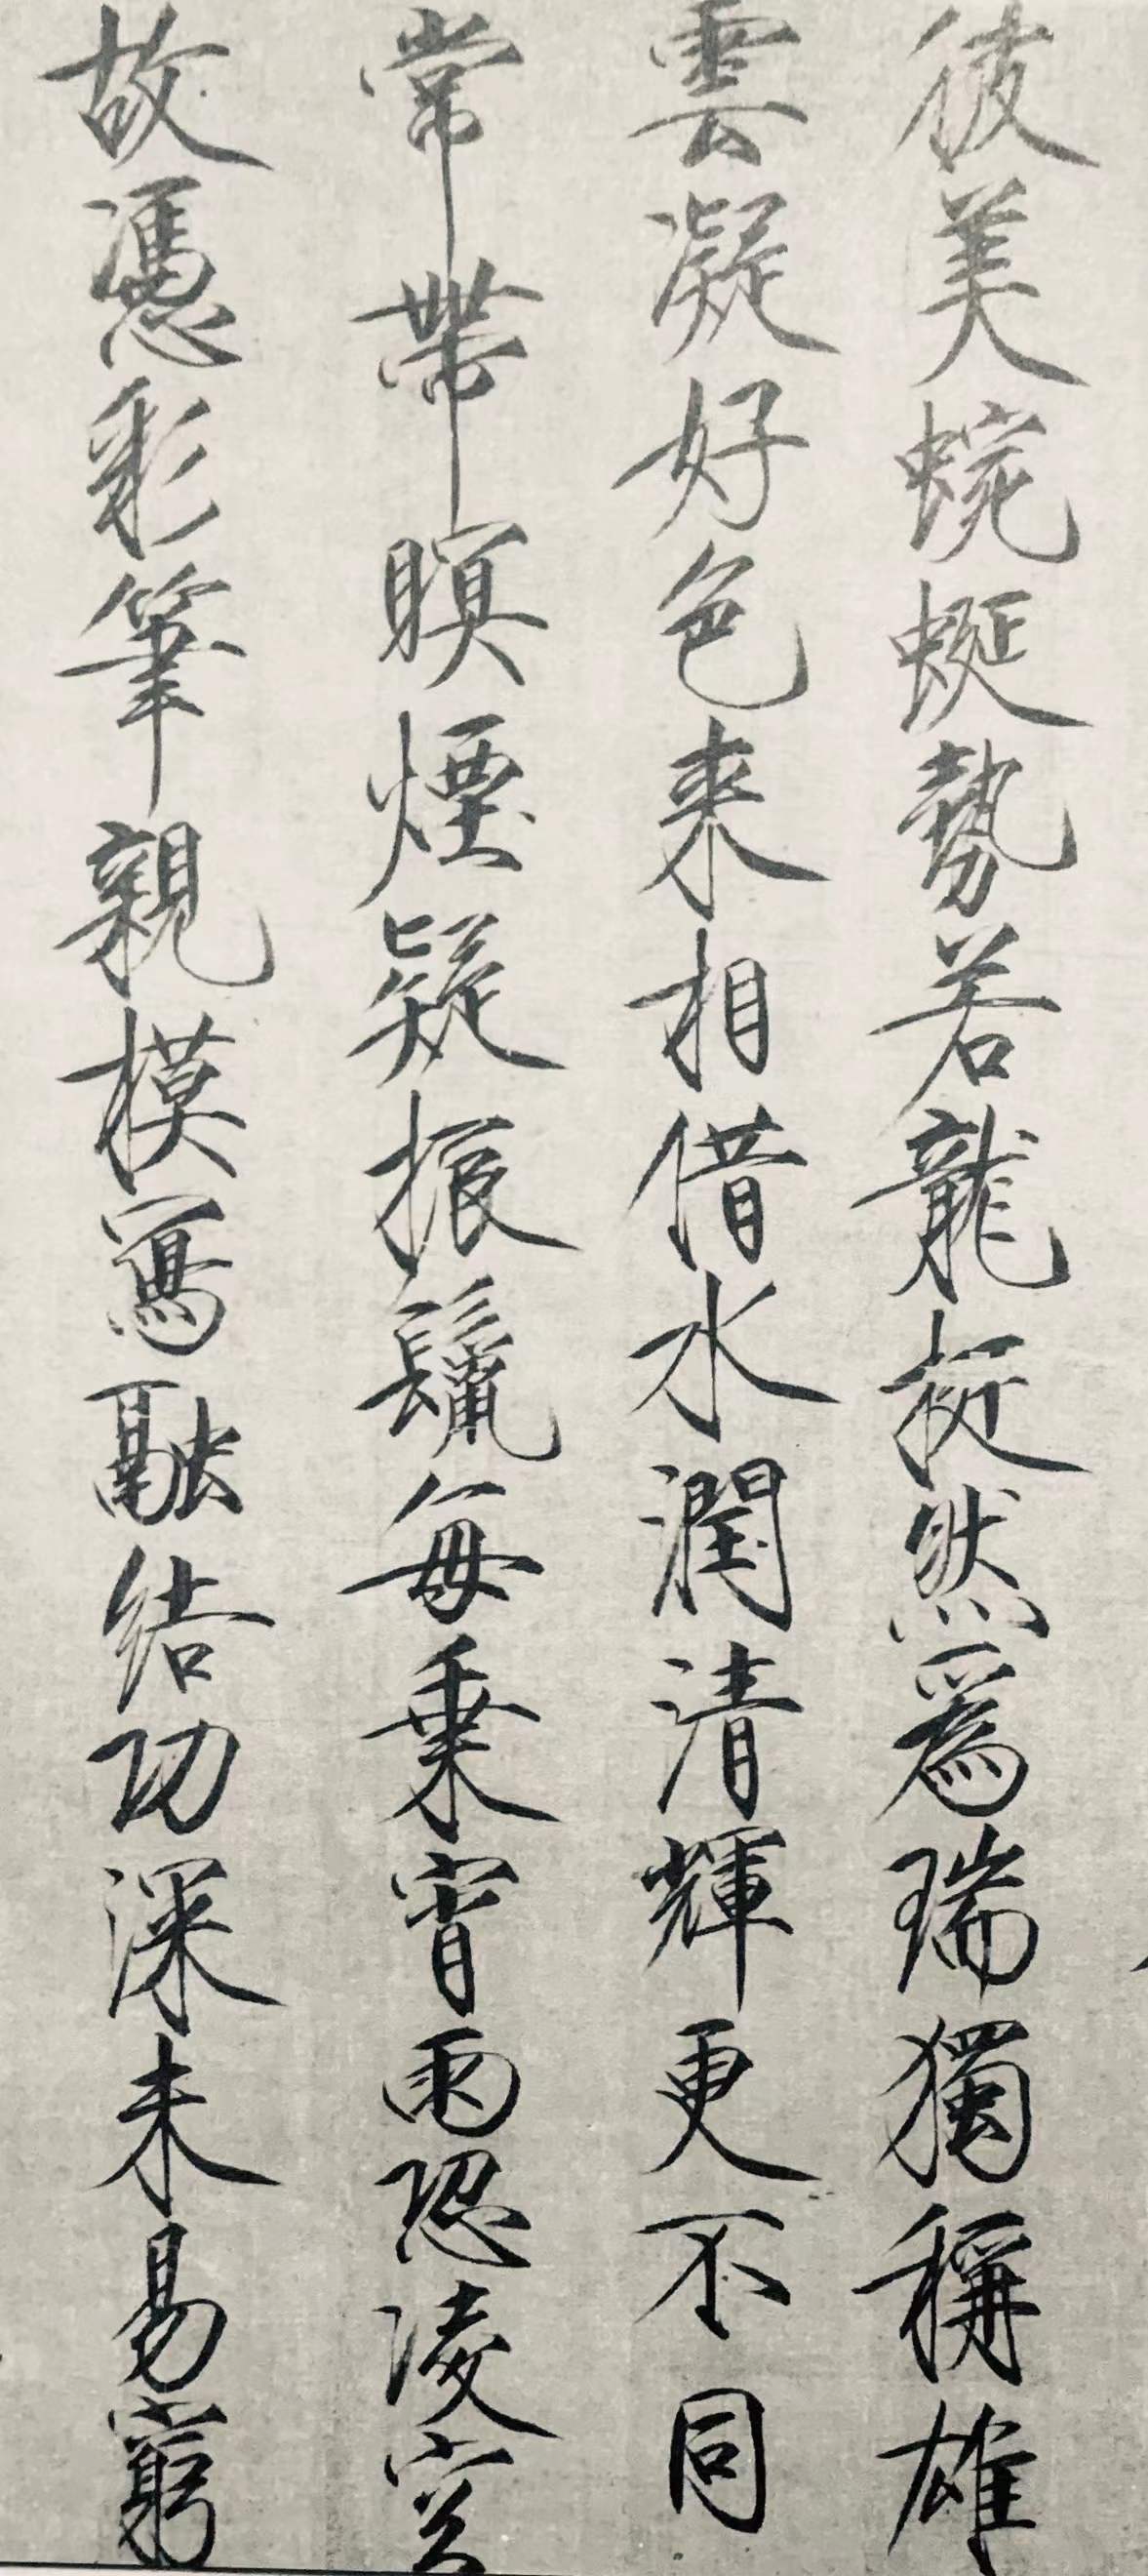 彼美蜿蜒勢若龍挺然爲瑞獨稱雄
雲凝好色來相借水潤清輝更不同
常帶瞑煙疑振鬣每乘宵雨恐凌空
故憑彩筆親模寫融結功深未易窮